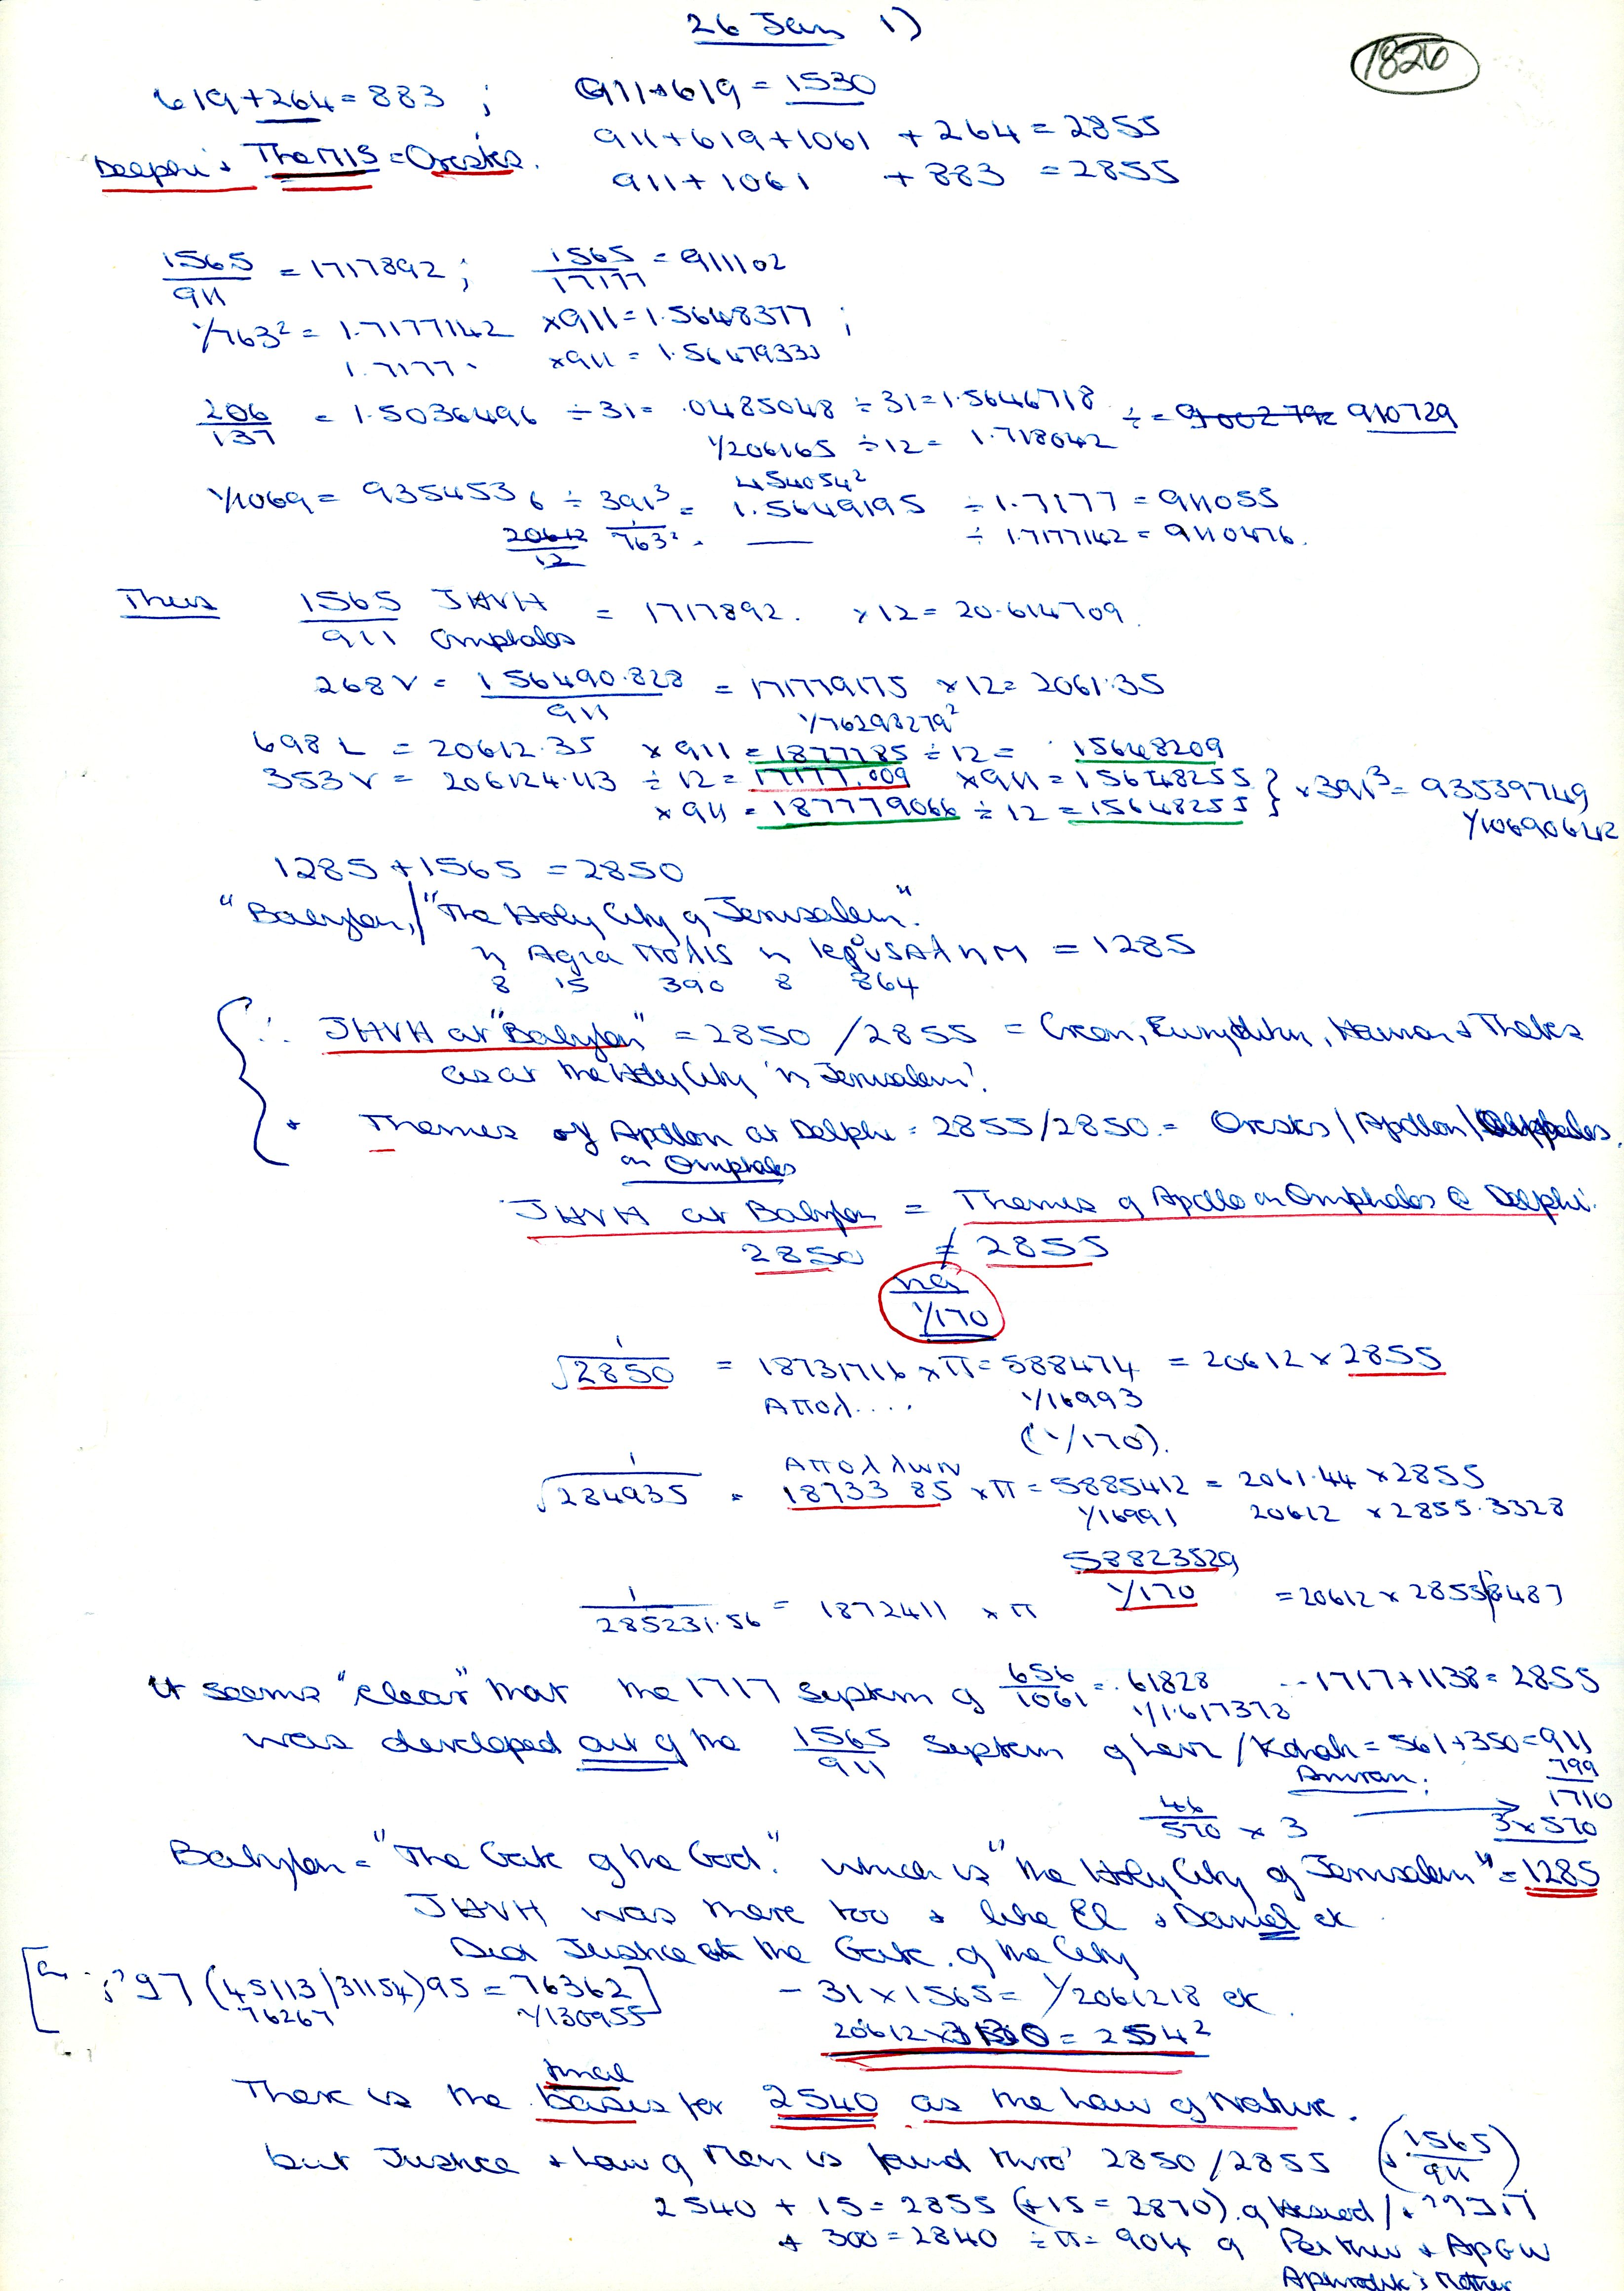 26 Jan 1)
1826
619+264=883 ; 911+619=1530
911+619+1061 +264=2855
Delphi + Themis=Orestes.
911+1061 +883 =2855
1565/911 =1717892; 1565/17177 =911102
1/763² = 1.7177142 ×911=1.5648377 ;
1.7177. ×911=1.56479333
206/137 = 1.5036496 ÷31= .0485048 ÷31=1.5646718 ÷= 910729
1/206165 ÷12= 1.718042
454054²
1/1069= 9354536 ÷ 391³ = 1.5649195 ÷1.7177=911055
20612/12 1/763² . — ÷1.7177142=9110476.
Thus 1565 JHVH / 911 Omphalos = 1717892. ×12=20.614709.
268V= 156490.828/911 = 171779175 ×12=2061.35
1/76298279²
698L = 20612.35 ×911=1877785÷12= .15648209
353V= 206124.113 ÷12=17177.009 ×911=15648255 } ×391³= 93539749
×911=187779066 ÷12=15648255 1/106906412
1285+1565=2850
"Babylon,/"The Holy City of Jerusalem".
η Αgια πολις η Ιερουsαλημ =1285
8 15 390 8 864
∴ JHVH at "Babylon" =2850/2855 = Creon, Eurydikn, Haimon + Thebes
as at the Holy City 'η Jerusalem'.
+ Themes of Apollon at Delphi = 2855/2850.= Orestes/Apollon/
on Omphalos
JHVH at Babylon = Themes of Apollo on Omphalos @ Delphi.
2850 ≠ 2855
1/170
1/√2850 = 18731716×π=588474 =20612×2855
Απολ.... 1/16993
(1/170).
Απολλων
1/√284935 = 1873385×π=5885412=2061.44×2855
1/16991 20612 ×2855.3328
58823529
1/285231.56 = 1872411 ×π 1/170 =20612×2855
It seems "clear" that the 1717 system of 656/1061=.61828 --1717+1138=2855
1/1.617373
was developed out of the 1565/911 system of Levi/Korah=561+350=911
Amran; 799
1710
46/570 ×3 3×570
Babylon="The Gate of the God." which is "the Holy City of Jerusalem"=1285
JHVH was there too + like El + Daniel etc
Did Justice at the Gate of the City
(45113/31154)95=76362] -31×1565=1/2061218 etc.
76267 1/130955
20612×3130=254²
There is the basis for 2540 as the Law of Nature.
but Justice + Law of Men is found thro' 2850/2855 (+1565/911)
2540 + 15=2855 (+15=2870). of Hesiod/+
+ 300=2840 ÷π= 904 of
Aphrodite's Mother